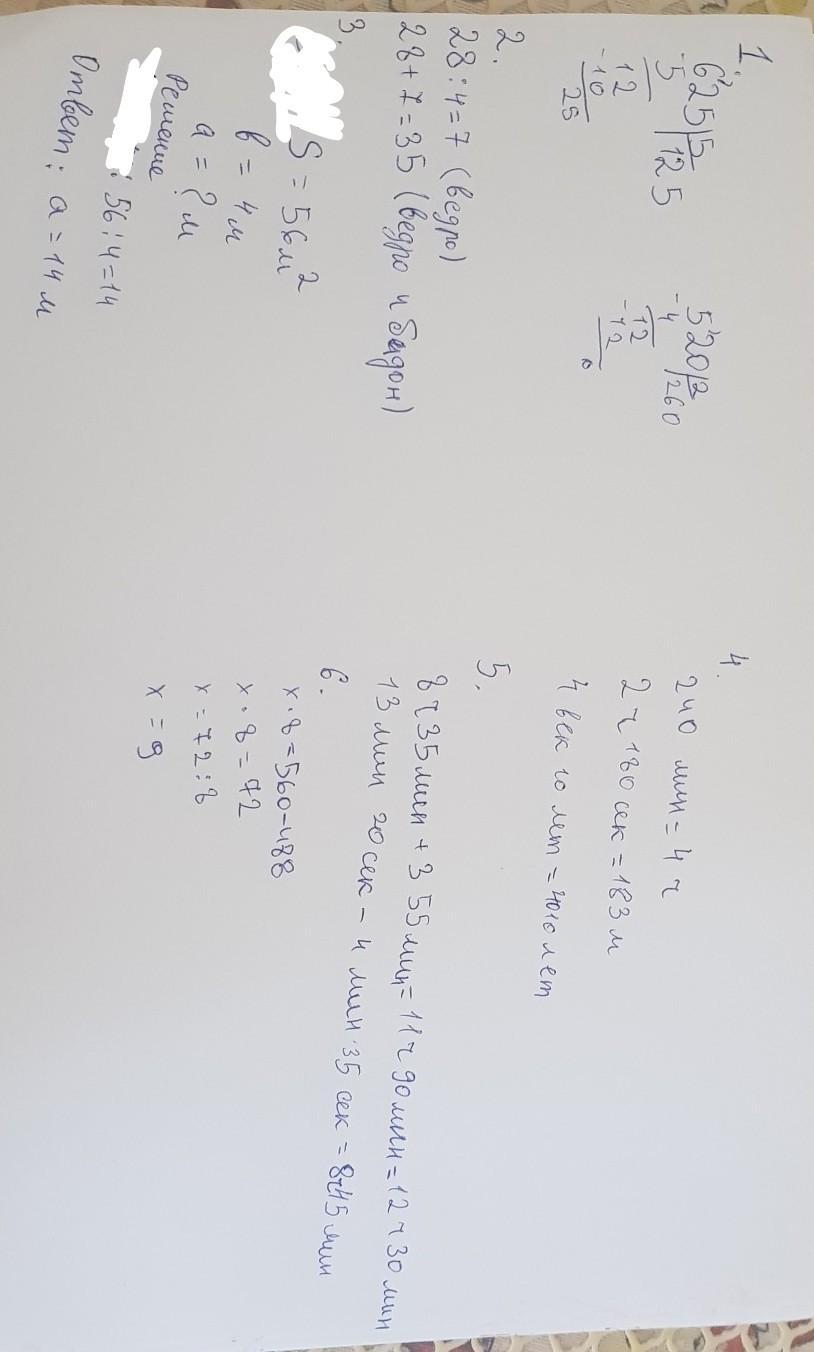 1.
625|5 520|2
-5 |125 -4 |260
12 12
-10 -12
25 0
2.
28:4=7 (ведро)
28+7=35 (ведро и бидон)
3.
S = 56м²
в = 4м
а = ? м
Решение
56:4=14
Ответ: а = 14 м
4.
240 мин = 4 ч
2 ч 180 сек = 183 м
4 век 10 лет = 4010 лет
5.
8 ч 35 мин + 3 55 мин = 11 ч 90 мин = 12 ч 30 мин
13 мин 20 сек - 4 мин 35 сек = 8ч45 мин
6.
х · 8 = 560-488
х · 8 = 72
х = 72:8
х = 9